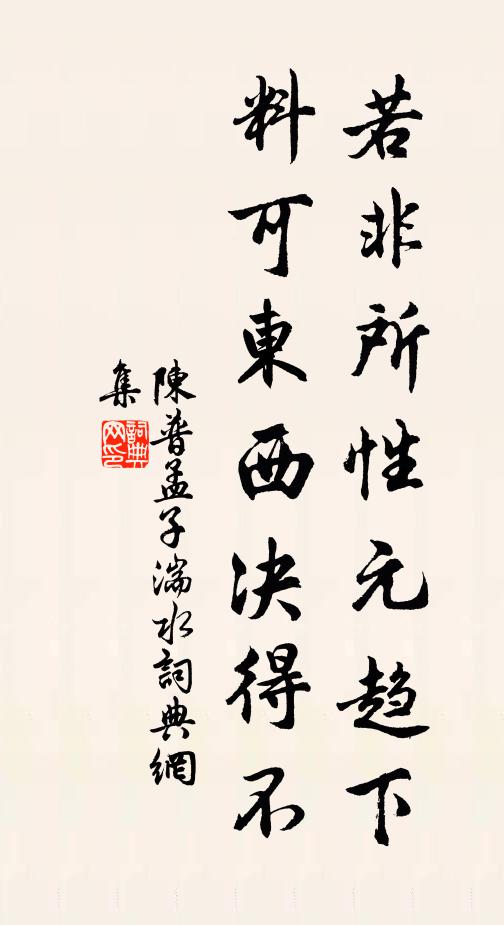 若非所性元趋下
料可東西决得不
陳普孟子湍水詞典網
集
詞典网印